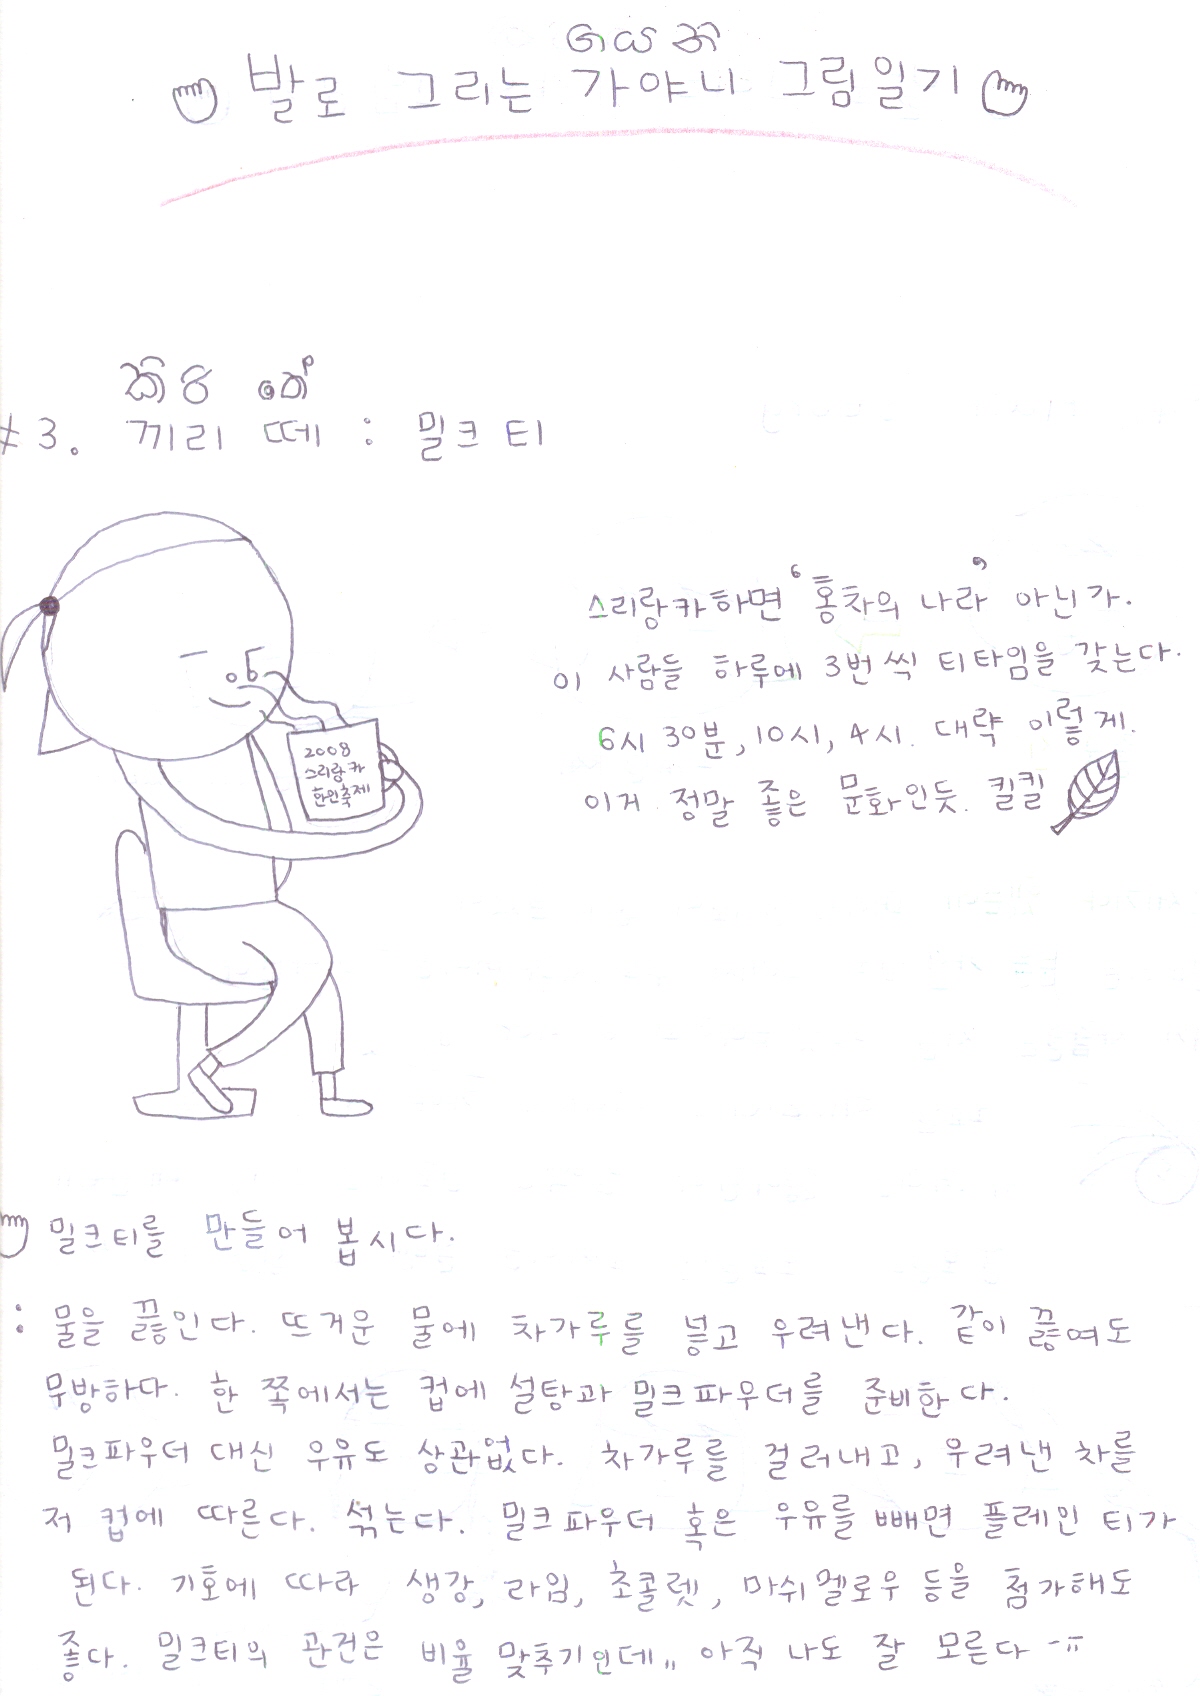 ගයනි
발로 그리는 가야니 그림일기
කිරි තේ
#3. 끼리 떼 : 밀크티
2008
스리랑카
한인축제
스리랑카하면 '홍차의 나라' 아닌가.
이 사람들 하루에 3번씩 티타임을 갖는다.
6시 30분, 10시, 4시. 대략 이렇게.
이거 정말 좋은 문화인듯. 킬킬
밀크티를 만들어 봅시다.
: 물을 끓인다. 뜨거운 물에 차가루를 넣고 우려낸다. 같이 끓여도
무방하다. 한 쪽에서는 컵에 설탕과 밀크파우더를 준비한다.
밀크파우더 대신 우유도 상관없다. 차가루를 걸러내고, 우려낸 차를
저 컵에 따른다. 섞는다. 밀크파우더 혹은 우유를 빼면 플레인 티가
된다. 기호에 따라 생강, 라임, 초콜렛, 마쉬멜로우 등을 첨가해도
좋다. 밀크티의 관건은 비율 맞추기인데,, 아직 나도 잘 모른다 -ㅠ